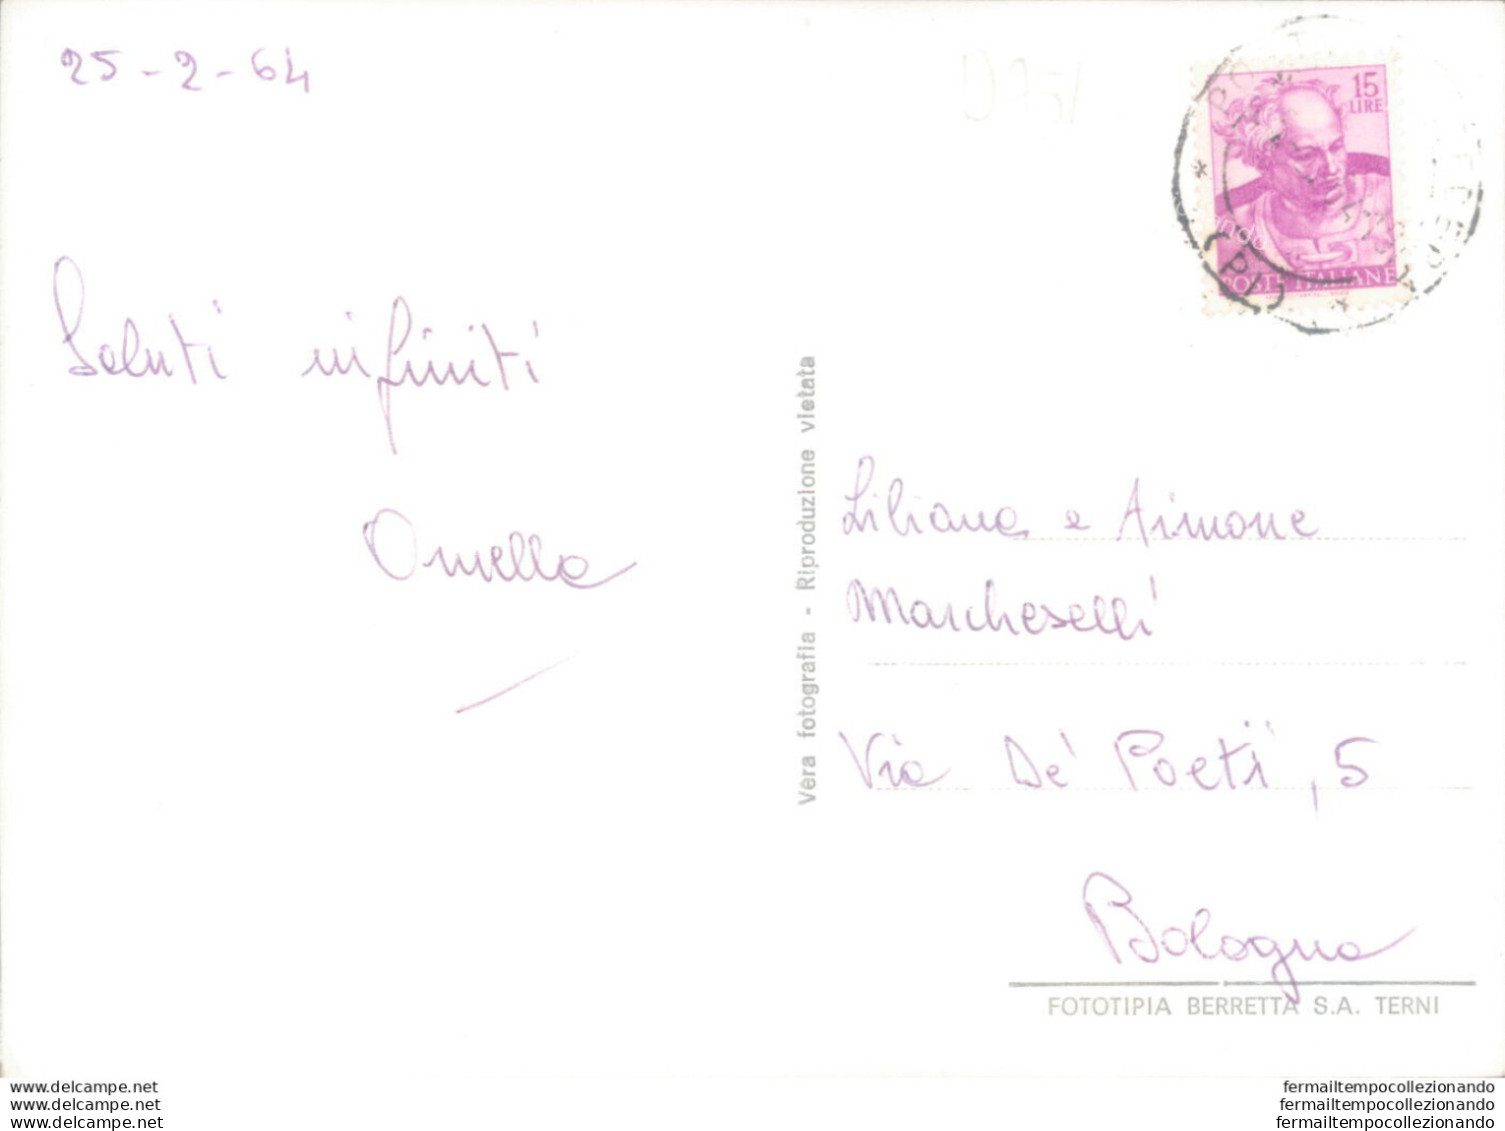 25-2-64
15
LIRE
POSTE ITALIANE
Saluti infiniti
Ornella
Vera fotografia - Riproduzione vietata
Liliana e Aimone
Marcheselli
Via De' Poeti, 5
Bologna
FOTOTIPIA BERRETTA S.A. TERNI
www.delcampe.net
www.delcampe.net
www.delcampe.net
fermailtempocollezionando
fermailtempocollezionando
fermailtempocollezionando